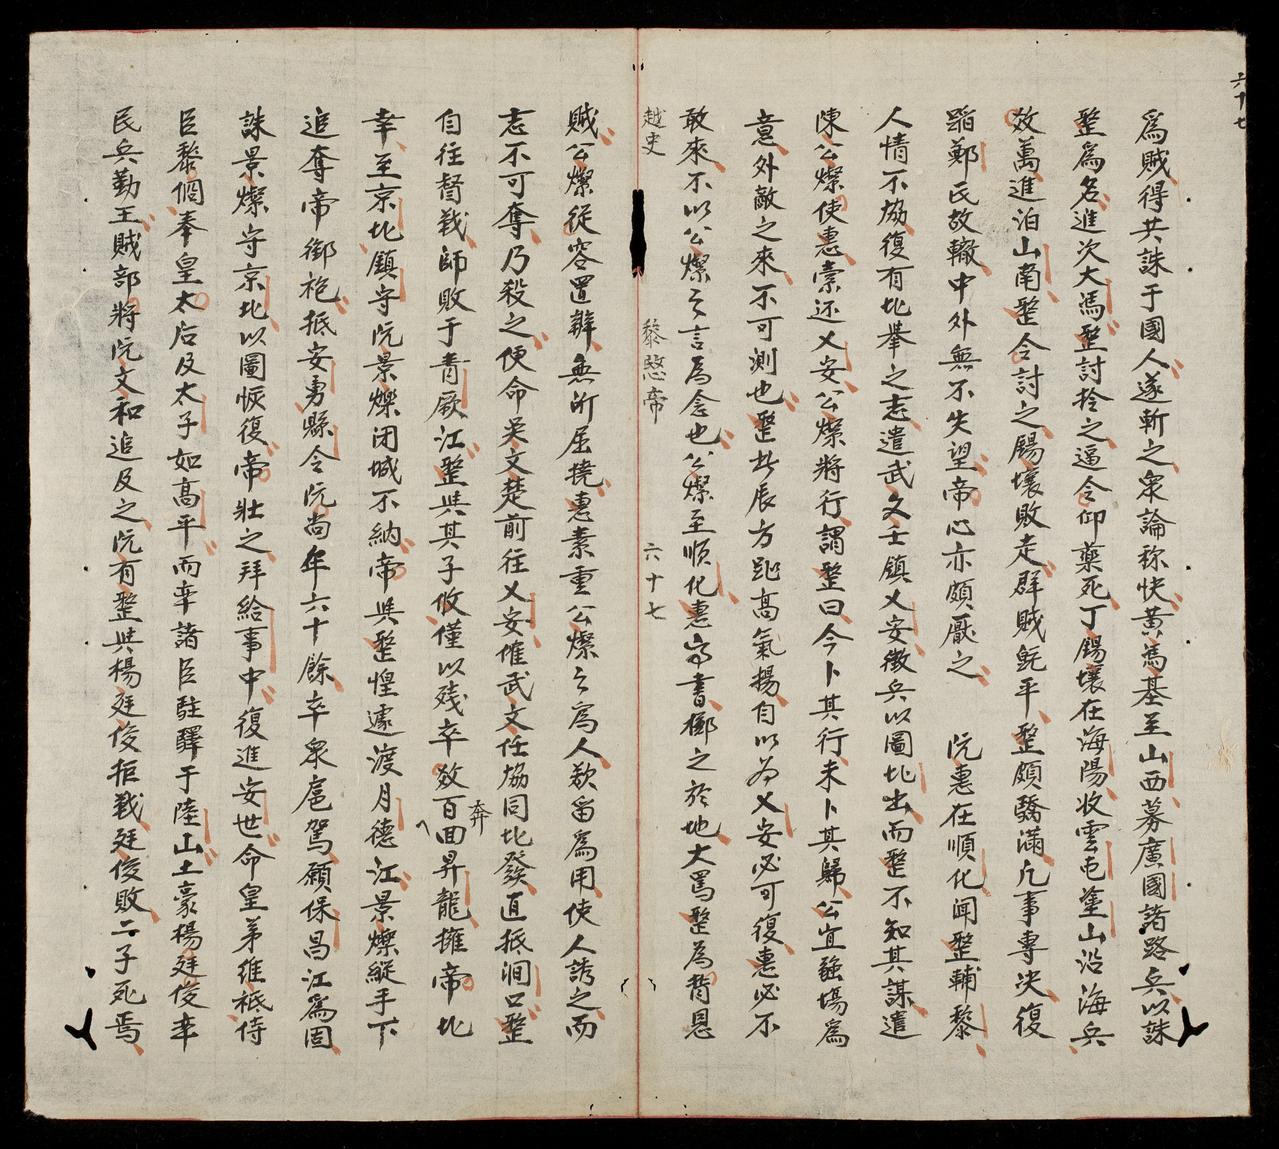 六十七
爲賊得共誅于國人遂斬之衆論称快黄馮基至山西募廣國諸路兵以誅
整爲名進次大馮整討拴之逼令仰藥死丁錫壤在海陽收雲屯塗山沿海兵
效萬進泊山南整令討之錫壤敗走群賊既平整頗驕滿凡事專决復
蹈鄭氏故轍中外無不失望帝心亦頗厭之 阮惠在順化闻整輔黎
人情不協復有北舉之志遣武文士鎮乂安徵兵以圖北出而整不知其謀遣
陳公燦使惠索还乂安公燦將行謂整曰今卜其行未卜其歸公宜疆場爲
意外敵之來不可測也整此辰方趾高氣揚自以為乂安必可復惠必不
敢來不以公燦之言為念也公燦至順化惠 書擲之於地大罵整為背恩
越史 黎愍帝 六十七
賊公燦從容置辨無所屈撓惠素重公燦之爲人欲畱爲用使人誘之而
志不可奪乃殺之便命吴文楚前往乂安催武文任協同北發直抵澗口整
自往督戰師敗于青厥江整與其子攸僅以殘卒效百奔回昇龍擁帝北
幸至京北鎮守阮景爍闭城不納帝與整惶遽渡月德江景燦縦手下
追奪帝御袍抵安勇縣令阮尚年六十餘卒衆扈駕願保昌江爲固
誅景燦守京北以圖恢復帝壯之拜給事中復進安世命皇弟維祗侍
臣黎個奉皇太后及太子如高平而幸諸臣駐驛于陸山土豪楊廷俊率
民兵勤王賊部將阮文和追及之阮有整與楊廷俊拒戰廷俊敗二子死焉